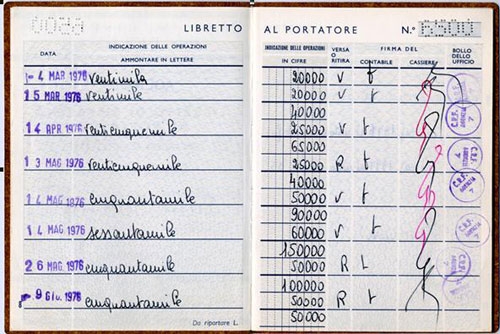 LIBRETTO AL PORTATORE N.° 6500
DATA INDICAZIONE DELLE OPERAZIONI AMMONTARE IN LETTERE
INDICAZIONE DELLE OPERAZIONI IN CIFRE VERSA O RITIRA FIRMA DEL CONTABILE CASSIERE BOLLO DELL' UFFICIO
- 4 MAR 1976 ventimila 20000 V t
15 MAR 1976 ventimile 20000 V t
40000
14 APR 1976 venticinquemile 25000 V t
65000
13 MAG 1976 venticinquemile 25000 R t
40000
14 MAG 1976 cinquantamile 50000 V t
90000
14 MAG 1976 sessantamile 60000 V t
150000
26 MAG 1976 cinquantamile 50000 R t
100000
- 9 GIU 1976 cinquantamile 50000 R t
Da riportare L. 50000